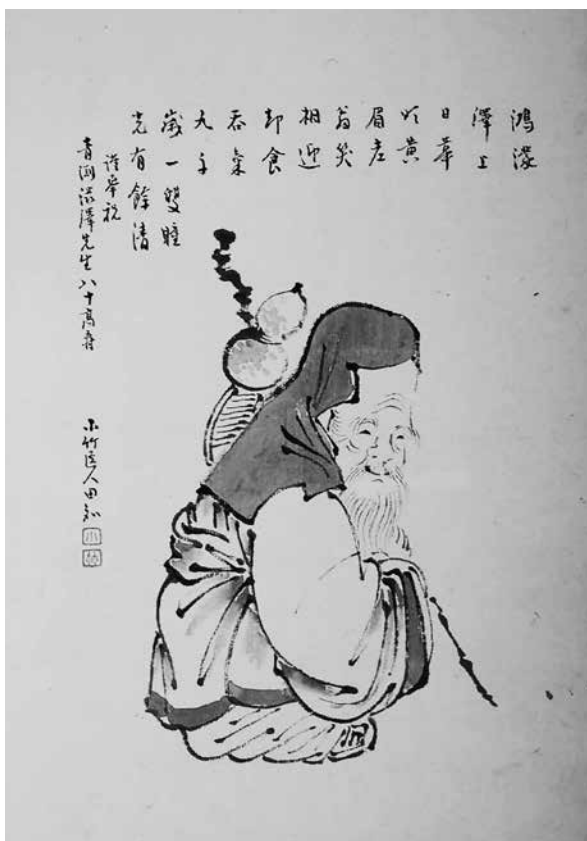 鴻濛
澤上
日華
明黄
眉老
翁笑
相迎
却食
吞氣
九千
歳一雙瞳
光有餘清
謹奉祝
青淵澁澤先生八十高壽
小竹 人田